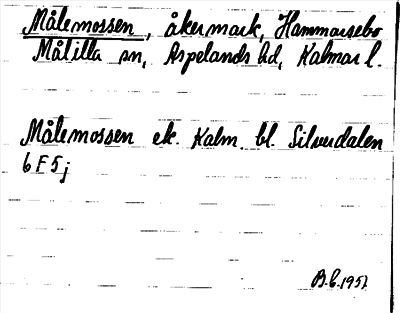 Målemossen, åkermark, Hammarsebo
Målilla sn, Aspelands hd, Kalmar l.
Målemossen ek. Kalm. bl. Silverdalen
6 F 5 j